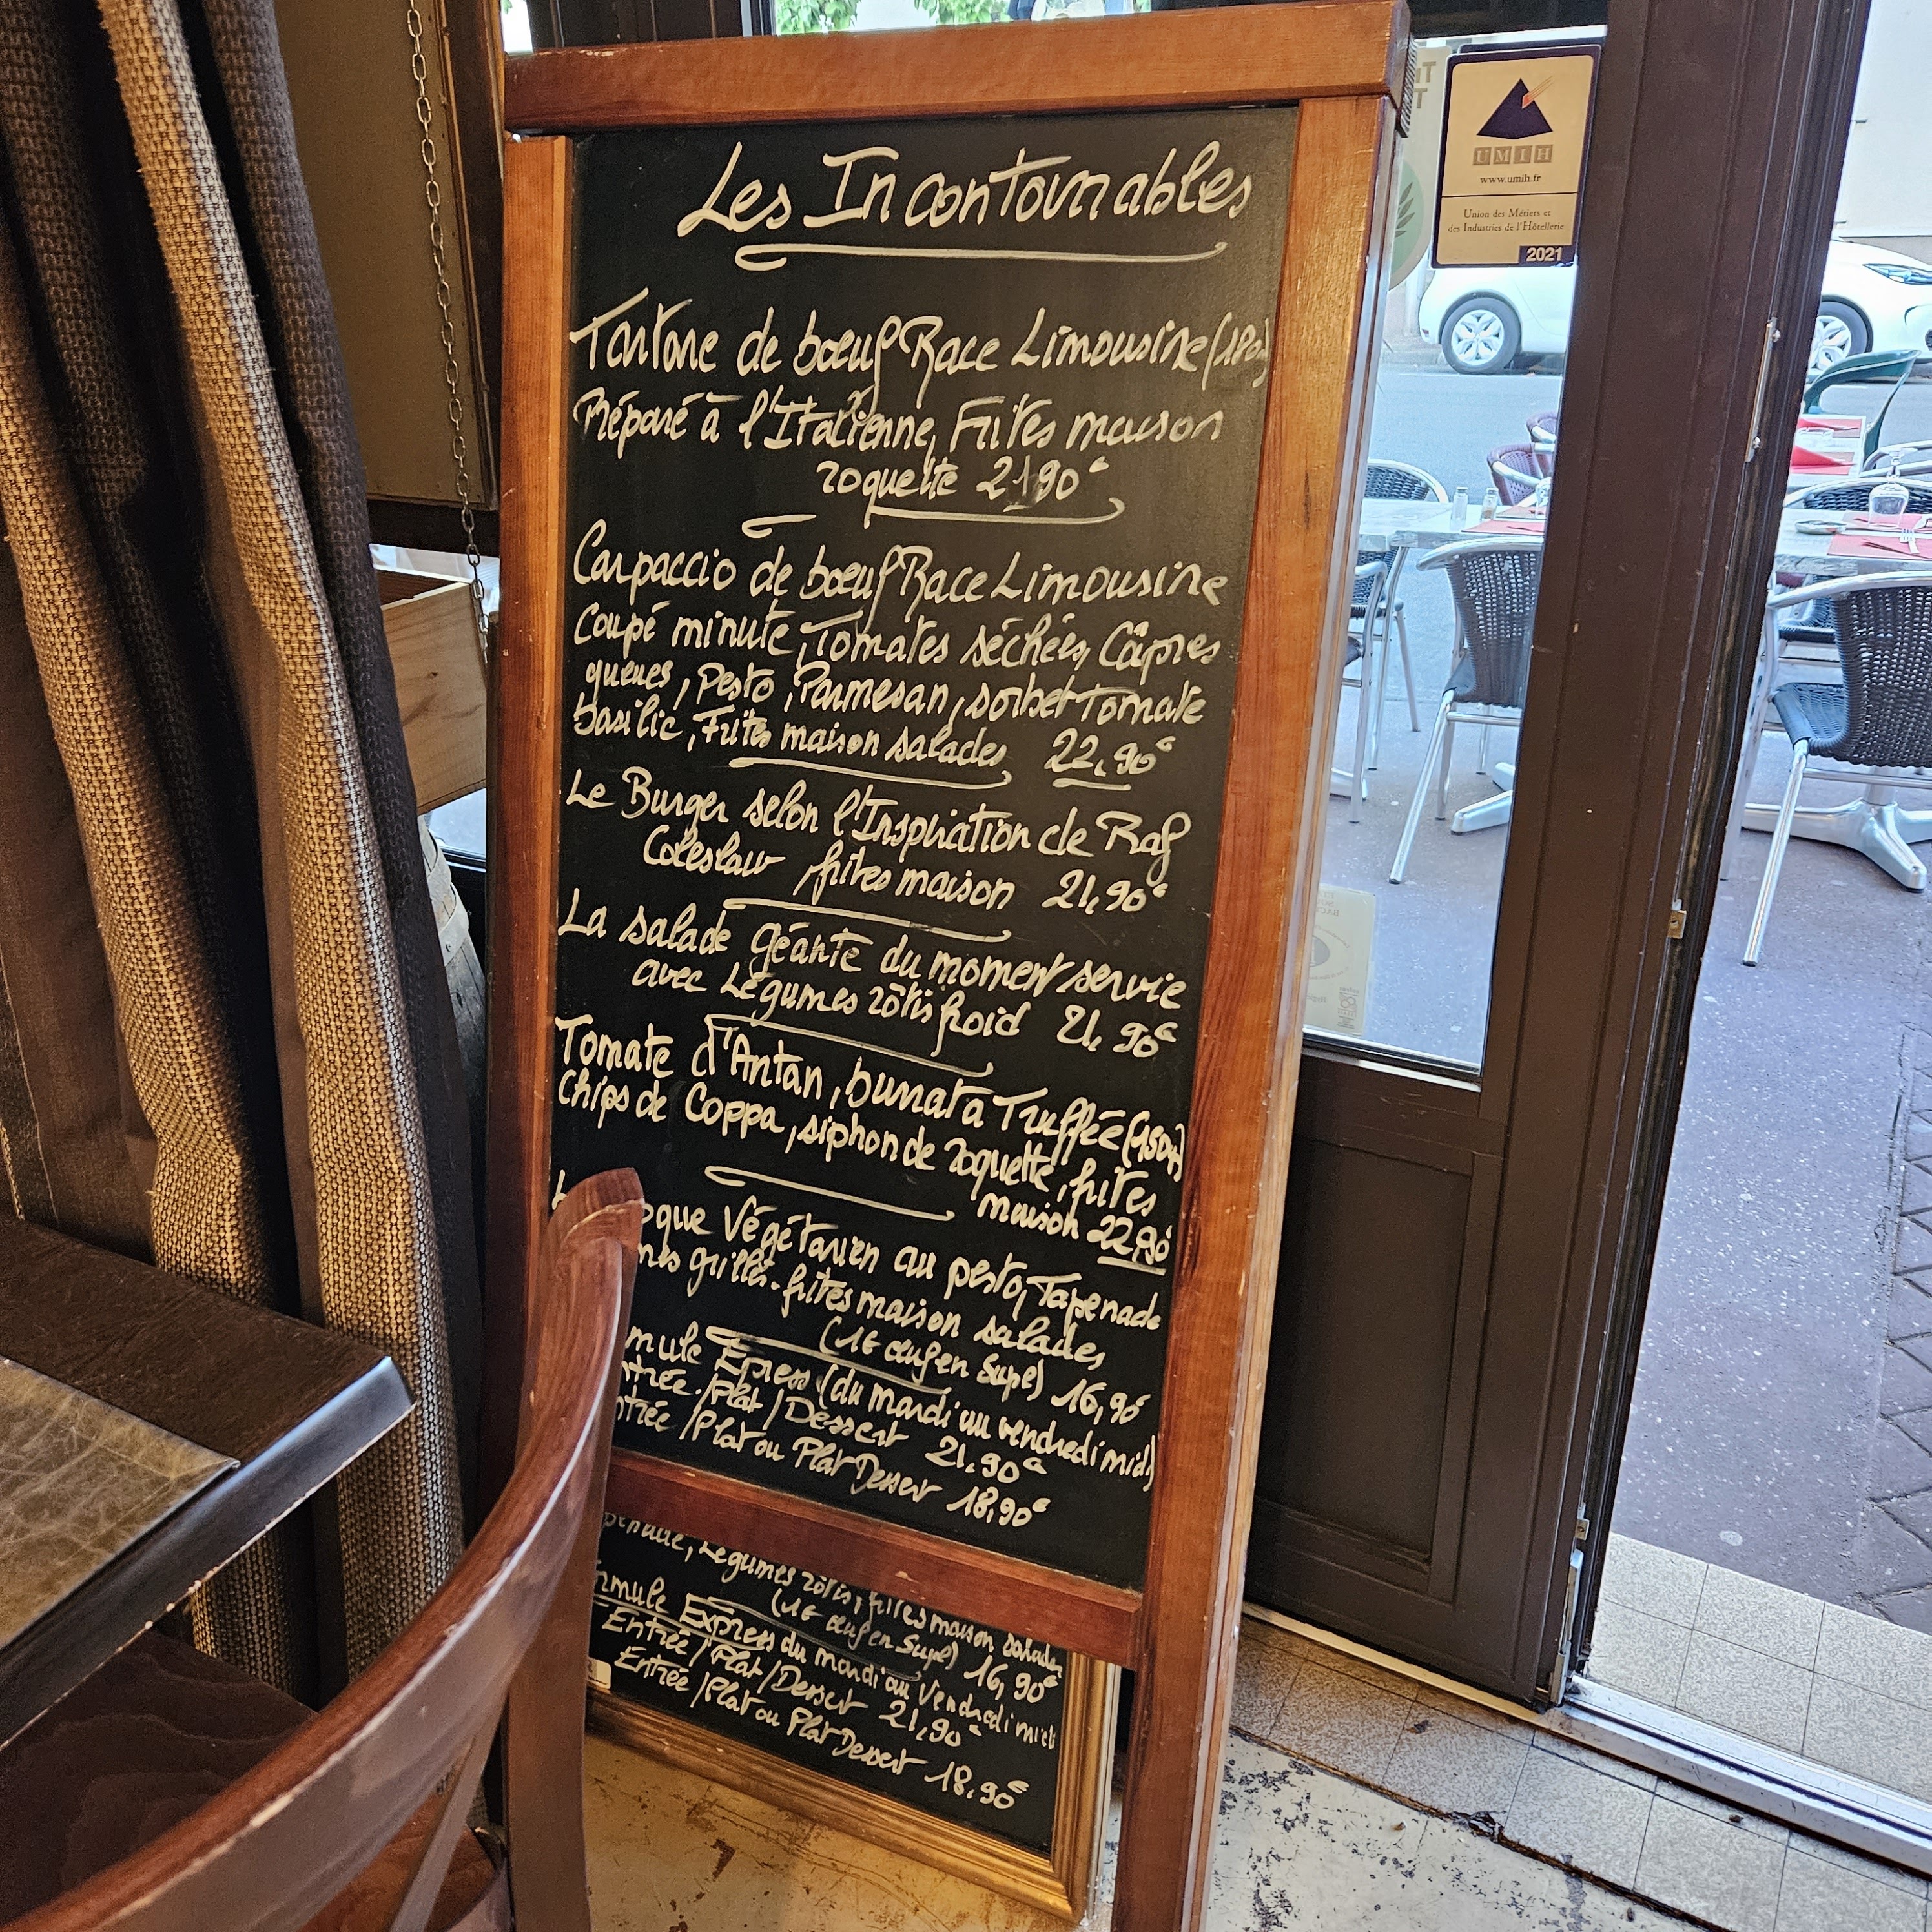 Les Incontournables
Tartare de bœuf Race Limousine (180g)
Préparé à l'Italienne, Frites maison
roquette 21,90€
Carpaccio de bœuf Race Limousine
Coupé minute, Tomates séchées, Câpres
queues, Pesto, Parmesan, sorbet Tomate
basilic, Frites maison salades 22,90€
Le Burger selon l'Inspiration de Raf
Coleslaw frites maison 21,90€
La salade géante du moment servie
avec Légumes rôtis froid 21,90€
Tomate d'Antan, burrata Truffée (150g)
chips de Coppa, siphon de roquette, frites
maison 22,90
oque Végétarien au pesto, Tapenade
mes grillés. frites maison salades
(1€ œuf en supp) 16,90
mule Epress (du mardi au vendredi midi)
ntrée/Plat/Dessert 21,90€
ntrée/Plat ou Plat Dessert 18,90€
penade, Légumes rôtis, frites maison salades
(1€ œuf en supp) 16,90€
rmule Express du mardi au vendredi midi
Entrée/Plat/Dessert 21,90€
Entrée/Plat ou Plat Dessert 18,90€
UMIH
www.umih.fr
Union des Métiers et
des Industries de l'Hôtellerie
2021